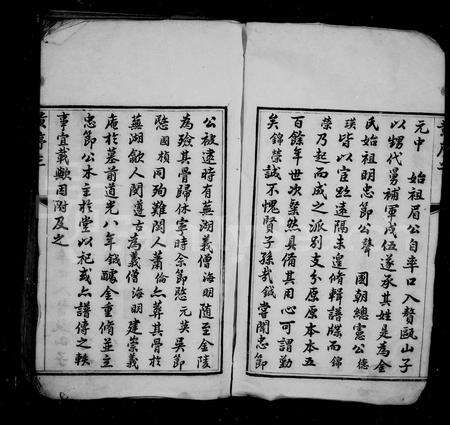 元中　始祖眉公自率口入贅甌山子
以甥代舅補軍戍伍遂承其姓是為金
民始祖明忠節公聲　國朝總憲公德
瑛皆以宦跡遠隔未遑脩輯譜牒而錦
榮乃起而成之派別支分原原本本五
百餘年世次粲然具備其用心可謂勤
矣錦榮誠不愧賢子孫哉鉞嘗聞忠節
公被逮時有蕪湖義僧海明隨至金陵
為殮其骨歸休寧時余節愍元英吳節
愍因楨同殉難閩人蕭倫並葬其骨於
蕪湖歙人閔遵古為義僧海明建崇義
庵於墓前道光八年鉞醵金重脩並主
忠節公木主於堂以祀或亦譜傳之軼
事宜載歟因附及之